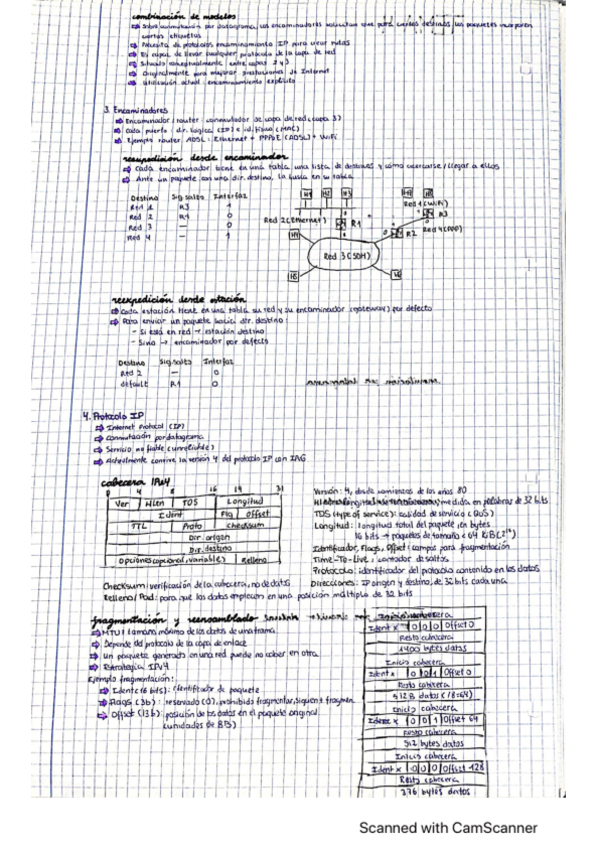 combinación de modelos
⇒ Sobre conmutación por datagrama, los encaminadores solicitan que para ciertos destinos los paquetes incorporen
ciertas etiquetas
⇒ Necesita de protocolos encaminamiento IP para crear rutas
⇒ Es capaz de llevar cualquier protocolo de la capa de red
⇒ Situado conceptualmente entre capas 2 y 3
⇒ Originalmente para mejorar prestaciones de Internet
⇒ Utilización actual: encaminamiento explícito
3. Encaminadores
⇒ Encaminador/router: conmutador de capa de red (capa 3)
⇒ Cada puerto: dir. lógica (IP) e id. física (MAC)
⇒ Ejemplo router ADSL: Ethernet + PPPoE (ADSL) + WiFi
reexpedición desde encaminador
⇒ Cada encaminador tiene en una tabla una lista de destinos y cómo acercarse/llegar a ellos
⇒ Ante un paquete con una dir. destino, la busca en su tabla
Destino Sig. salto Interfaz
Red 1 R3 1
Red 2 R1 0
Red 3 — 0
Red 4 — 1
H1 H2 H3
Red 2 (Ethernet) R1
Red 1 (WiFi)
R3
R2 Red 4 (PPP)
Red 3 (SDH)
H5
reexpedición desde estación
⇒ Cada estación tiene en una tabla su red y su encaminador (gateway) por defecto
⇒ Para enviar un paquete hacia dir. destino:
- Si está en red → estación destino
- Si no → encaminador por defecto
Destino Sig. salto Interfaz
Red 2 — 0
default R1 0
4. Protocolo IP
⇒ Internet Protocol (IP)
⇒ Conmutación por datagrama
⇒ Servicio no fiable (unreliable)
⇒ Actualmente convive la versión 4 del protocolo IP con IPv6
cabecera IPv4
0 4 8 16 19 31
Ver Hlen TOS Longitud
Ident Flg Offset
TTL Proto Checksum
Dir. origen
Dir. destino
Opciones (opcional, variables) Relleno
Versión: 4, desde comienzos de los años 80
medida en palabras de 32 bits
TOS (type of service): calidad de servicio (QoS)
Longitud: longitud total del paquete en bytes
16 bits → paquetes de tamaño < 64 KiB (2¹⁶)
Identificador, Flags, Offset: campos para fragmentación
Time-To-Live: contador de saltos
Protocolo: identificador del protocolo contenido en los datos
Direcciones: IP origen y destino, de 32 bits cada una
Checksum: verificación de la cabecera, no de datos
Relleno/Pad: para que los datos empiecen en una posición múltiplo de 32 bits
fragmentación y reensamblado
⇒ MTU: tamaño máximo de los datos de una trama
⇒ Depende del protocolo de la capa de enlace
⇒ Un paquete generado en una red puede no caber en otra
⇒ Estrategia IPv4
Ejemplo fragmentación:
⇒ Ident (16 bits): identificador de paquete
⇒ Flags (3b): reservado (0), prohibido fragmentar, siguient fragmen.
⇒ Offset (13b): posición de los datos en el paquete original
(unidades de 8B)
Inicio cabecera
Ident x 0 0 0 Offset 0
Resto cabecera
1400 bytes datos
Inicio cabecera
Ident x 0 0 1 Offset 0
Resto cabecera
512B datos (18:64)
Inicio cabecera
Ident x 0 0 1 Offset 64
Resto cabecera
512 bytes datos
Inicio cabecera
Ident x 0 0 0 Offset 128
Resto cabecera
376 bytes datos
Scanned with CamScanner